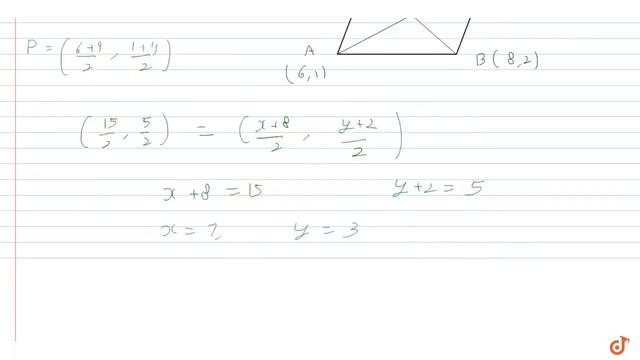 P = (6+9/2, 1+4/2)
A
(6,1)
B(8,2)
(15/2, 5/2) = (x+8/2, y+2/2)
x+8=15 y+2=5
x=7, y=3